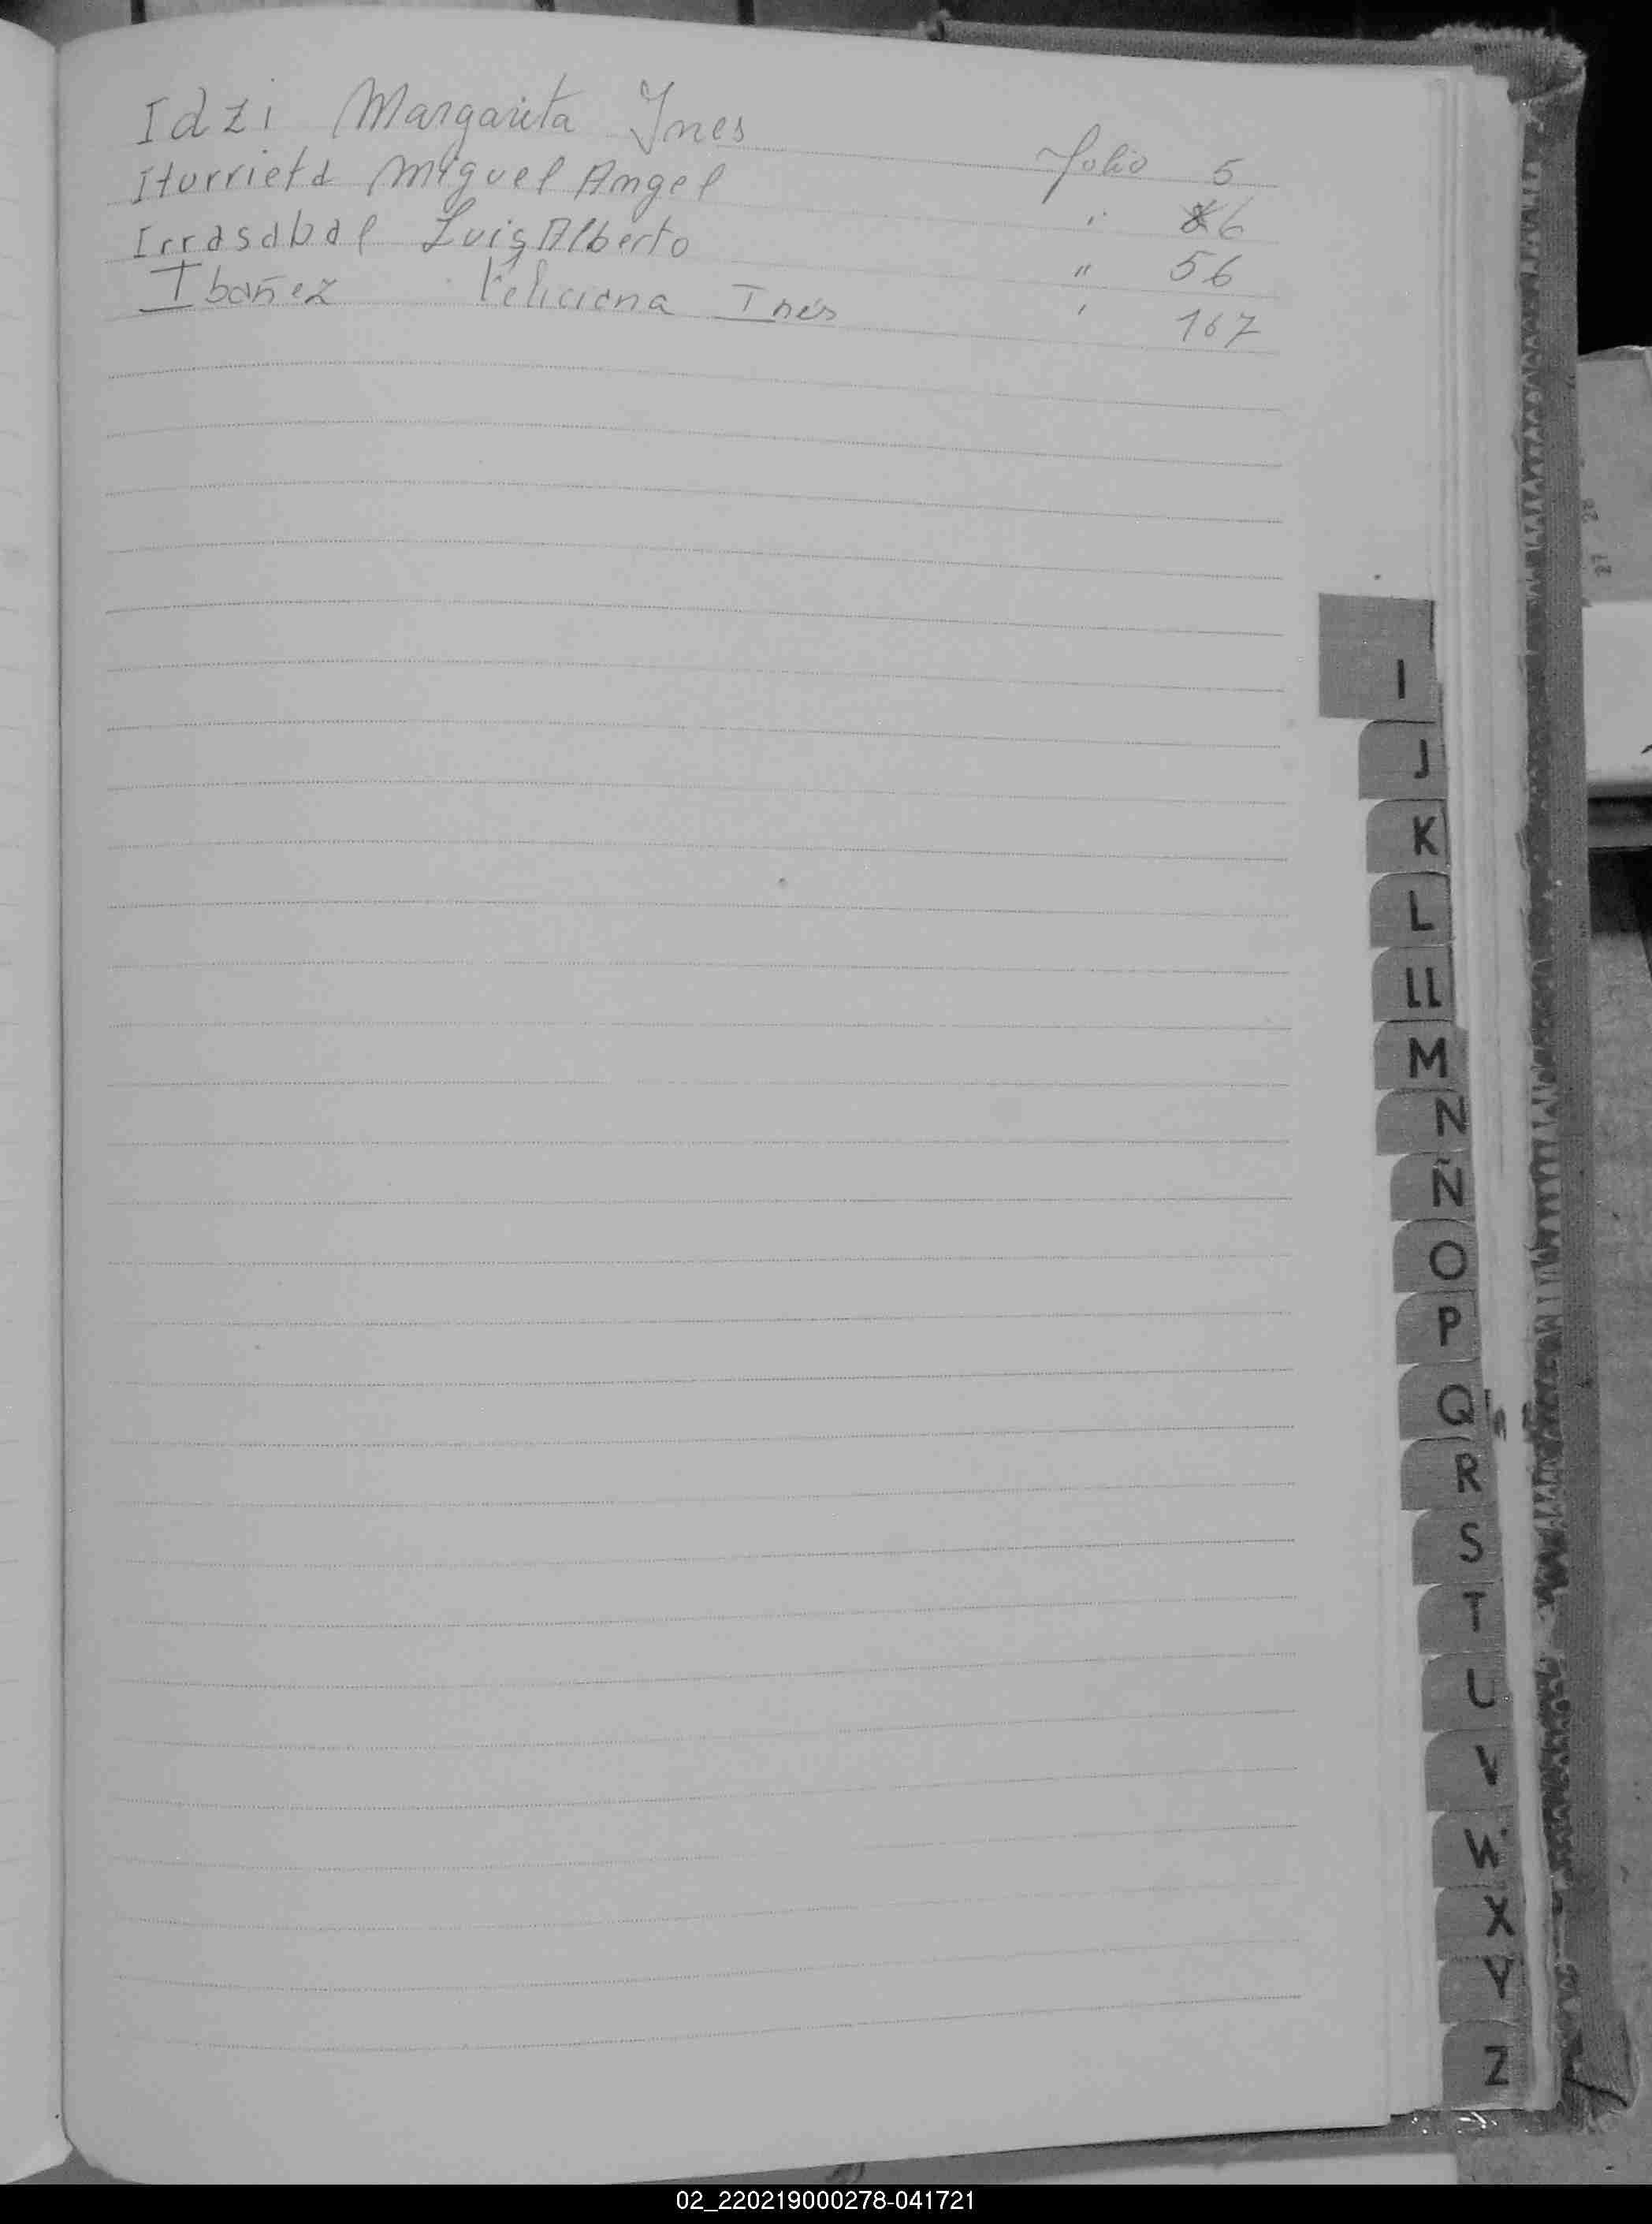 Idzi Margarita Ynes folio 5
Iturrieta Miguel Angel " 6
Irrasabal Luis Alberto " 56
Ibañez Feliciana Inés " 167
I
J
K
L
LL
M
N
Ñ
O
P
Q
R
S
T
U
V
W
X
Y
Z
02_220219000278-041721